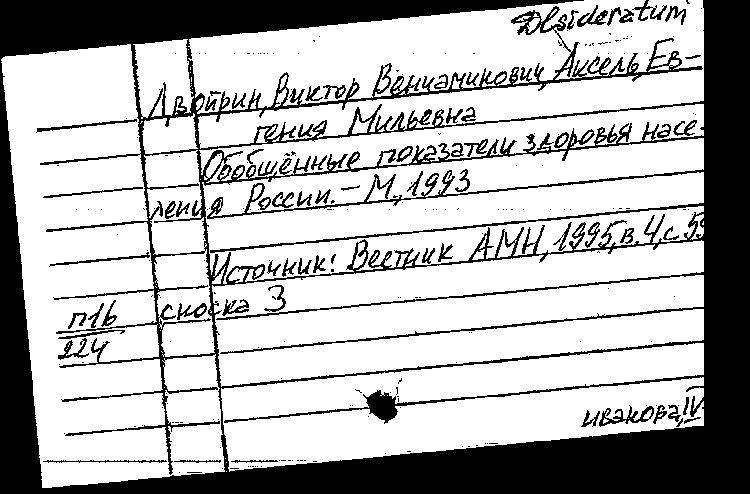 Desideratum
Двойрин, Виктор Вениаминович, Аксель, Ев-
гения Мильевна
Обобщённые показатели здоровья насе-
ления России. – М., 1993
Источник: Вестник АМН, 1995, в. 4, с. 59
сноска 3
п16
224
иванова, IV